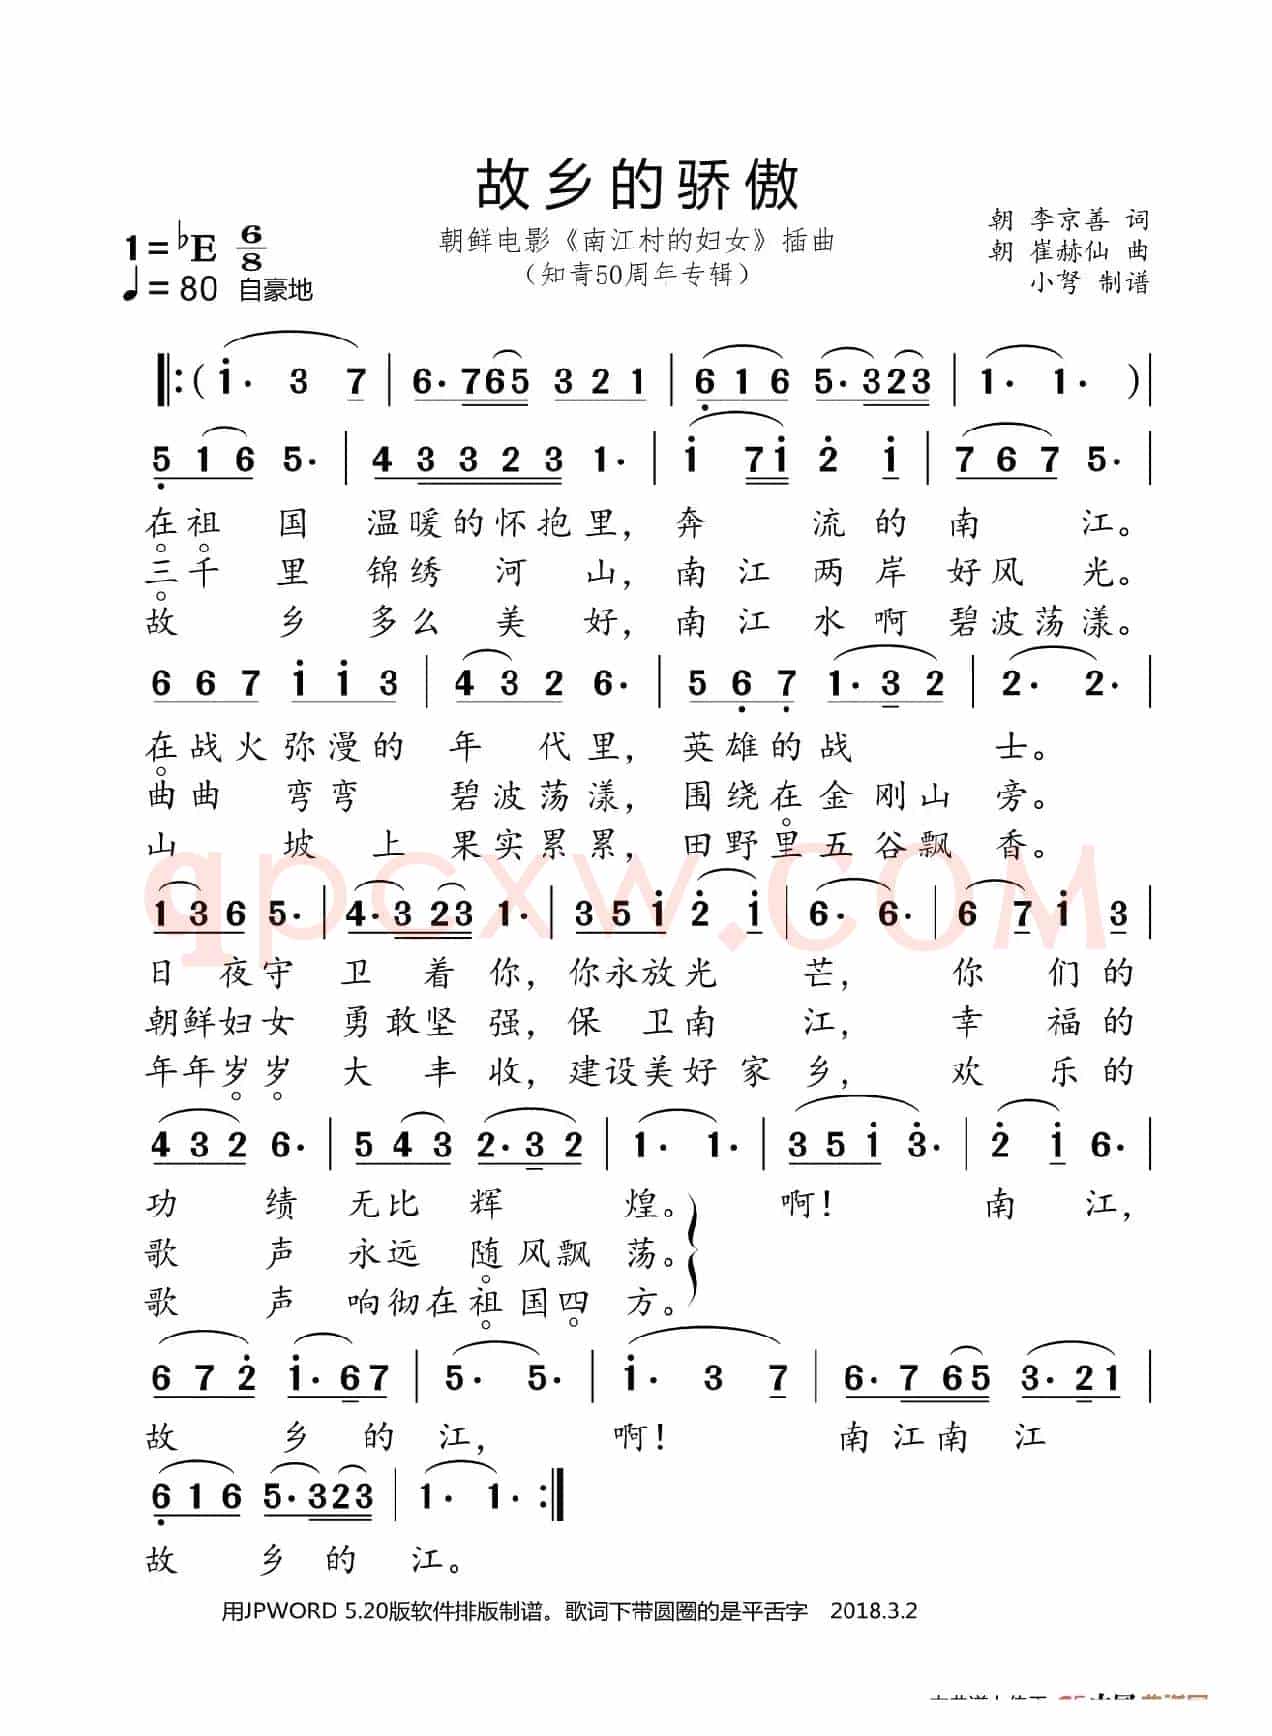 故乡的骄傲
朝鲜电影《南江村的妇女》插曲
（知青50周年专辑）
朝 李京善 词
朝 崔赫仙 曲
小弩 制谱
1=♭E 6/8
♩=80 自豪地
‖:( i· 3 7 | 6· 765 3 2 1 | 6 1 6 5· 323 | 1· 1· ) |
5 1 6 5· | 4 3 3 2 3 1· | i 7i 2 i | 7 6 7 5· |
在祖 国 温暖的怀抱里，奔 流的南 江。
三千 里 锦绣 河 山，南江两岸好风 光。
故 乡 多么 美 好，南江水啊碧波荡漾。
6 6 7 i i 3 | 4 3 2 6· | 5 6 7 1· 3 2 | 2· 2· |
在战火弥漫的 年 代里，英雄的战 士。
曲曲 弯弯 碧波荡漾，围绕在金刚山 旁。
山 坡 上 果实累累，田野里五谷飘 香。
qpcxw.com
1 3 6 5· | 4· 3 23 1· | 3 5 i 2 i | 6· 6· | 6 7 i 3 |
日 夜守 卫 着 你，你永放光 芒，你 们的
朝鲜妇女 勇敢坚 强，保 卫南 江，幸 福的
年年岁岁 大 丰 收，建设美好家 乡，欢 乐的
4 3 2 6· | 5 4 3 2· 3 2 | 1· 1· | 3 5 i 3· | 2 i 6· |
功 绩 无比 辉 煌。 啊！ 南 江，
歌 声 永远 随风飘 荡。
歌 声 响彻在祖国四 方。
6 7 2 i· 6 7 | 5· 5· | i· 3 7 | 6· 7 65 3· 21 |
故 乡 的 江， 啊！ 南江南 江
6 1 6 5· 323 | 1· 1· :‖
故 乡 的 江。
用JPWORD 5.20版软件排版制谱。歌词下带圆圈的是平舌字 2018.3.2